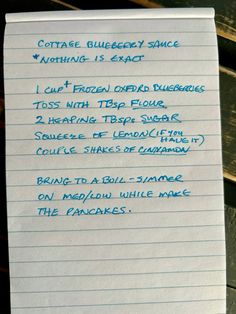 COTTAGE BLUEBEERY SAUCE
*NOTHING IS EXACT
1 CUP+ FROZEN OXFORD BLUEBERRIES
TOSS WITH TBsp FLOUR,
2 HEAPING TBsps SUGAR
SQUEEZE OF LEMON (IF YOU HAVE IT)
COUPLE SHAKES OF CINNAMON
BRING TO A BOIL - SIMMER
ON MED/LOW WHILE MAKE
THE PANCAKES.